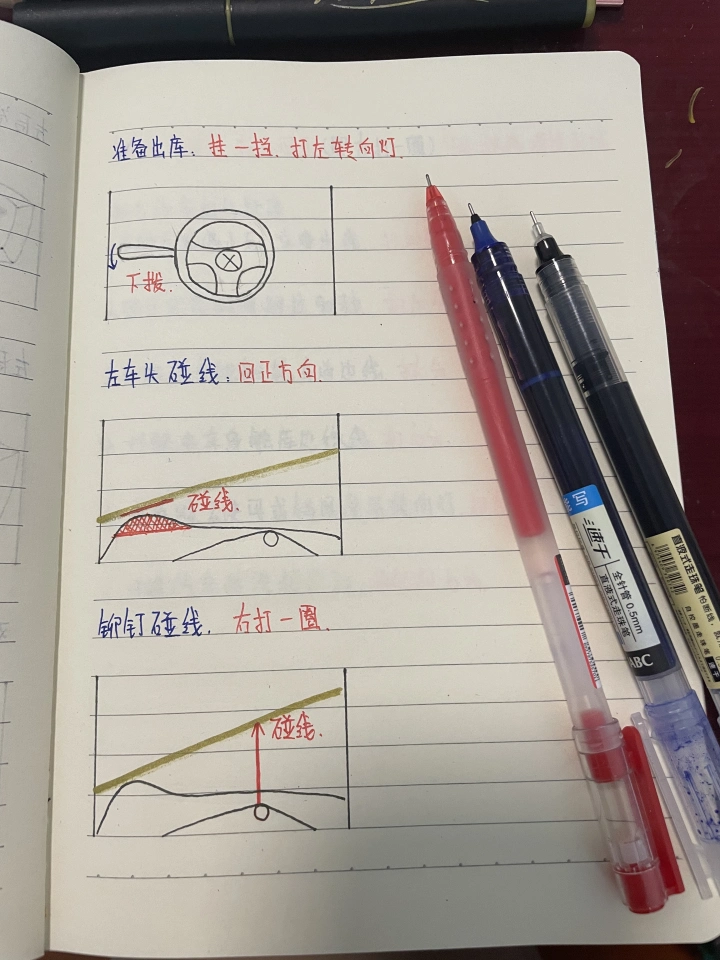 准备出库：挂一挡.打左转向灯.
下拨.
左车头碰线：回正方向.
碰线.
铆钉碰线，右打一圈.
碰线.
写
速干
金针管 0.5mm
直液式走珠笔
ABC
直液式走珠笔